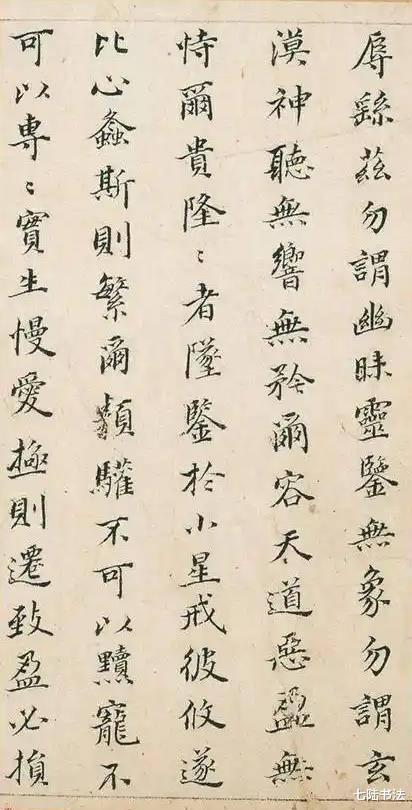 辱繇茲勿謂幽昧靈鑒無象勿謂玄
漠神聽無響無矜爾容天道惡盈無
恃爾貴隆〻者墜鑒於小星戒彼攸遂
比心螽斯則繁爾類驩不可以黷寵不
可以專〻實生慢愛極則遷致盈必損
七陆书法